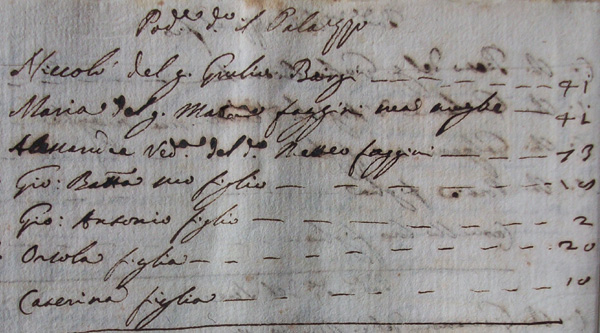 Pod.e d.o il Palazzo
Niccolò del q. Giulio Borgi — — — — 41
Maria del q. Matteo faggini sua moglie — 41
Alessandra Ved.a del d.o Matteo faggini — — — 73
Gio: Batta suo figlio — — — — — —
Gio: Antonio figlio — — — — — — 2
Orsola figlia — — — — — — — 20
Caterina figlia — — — — — — 10